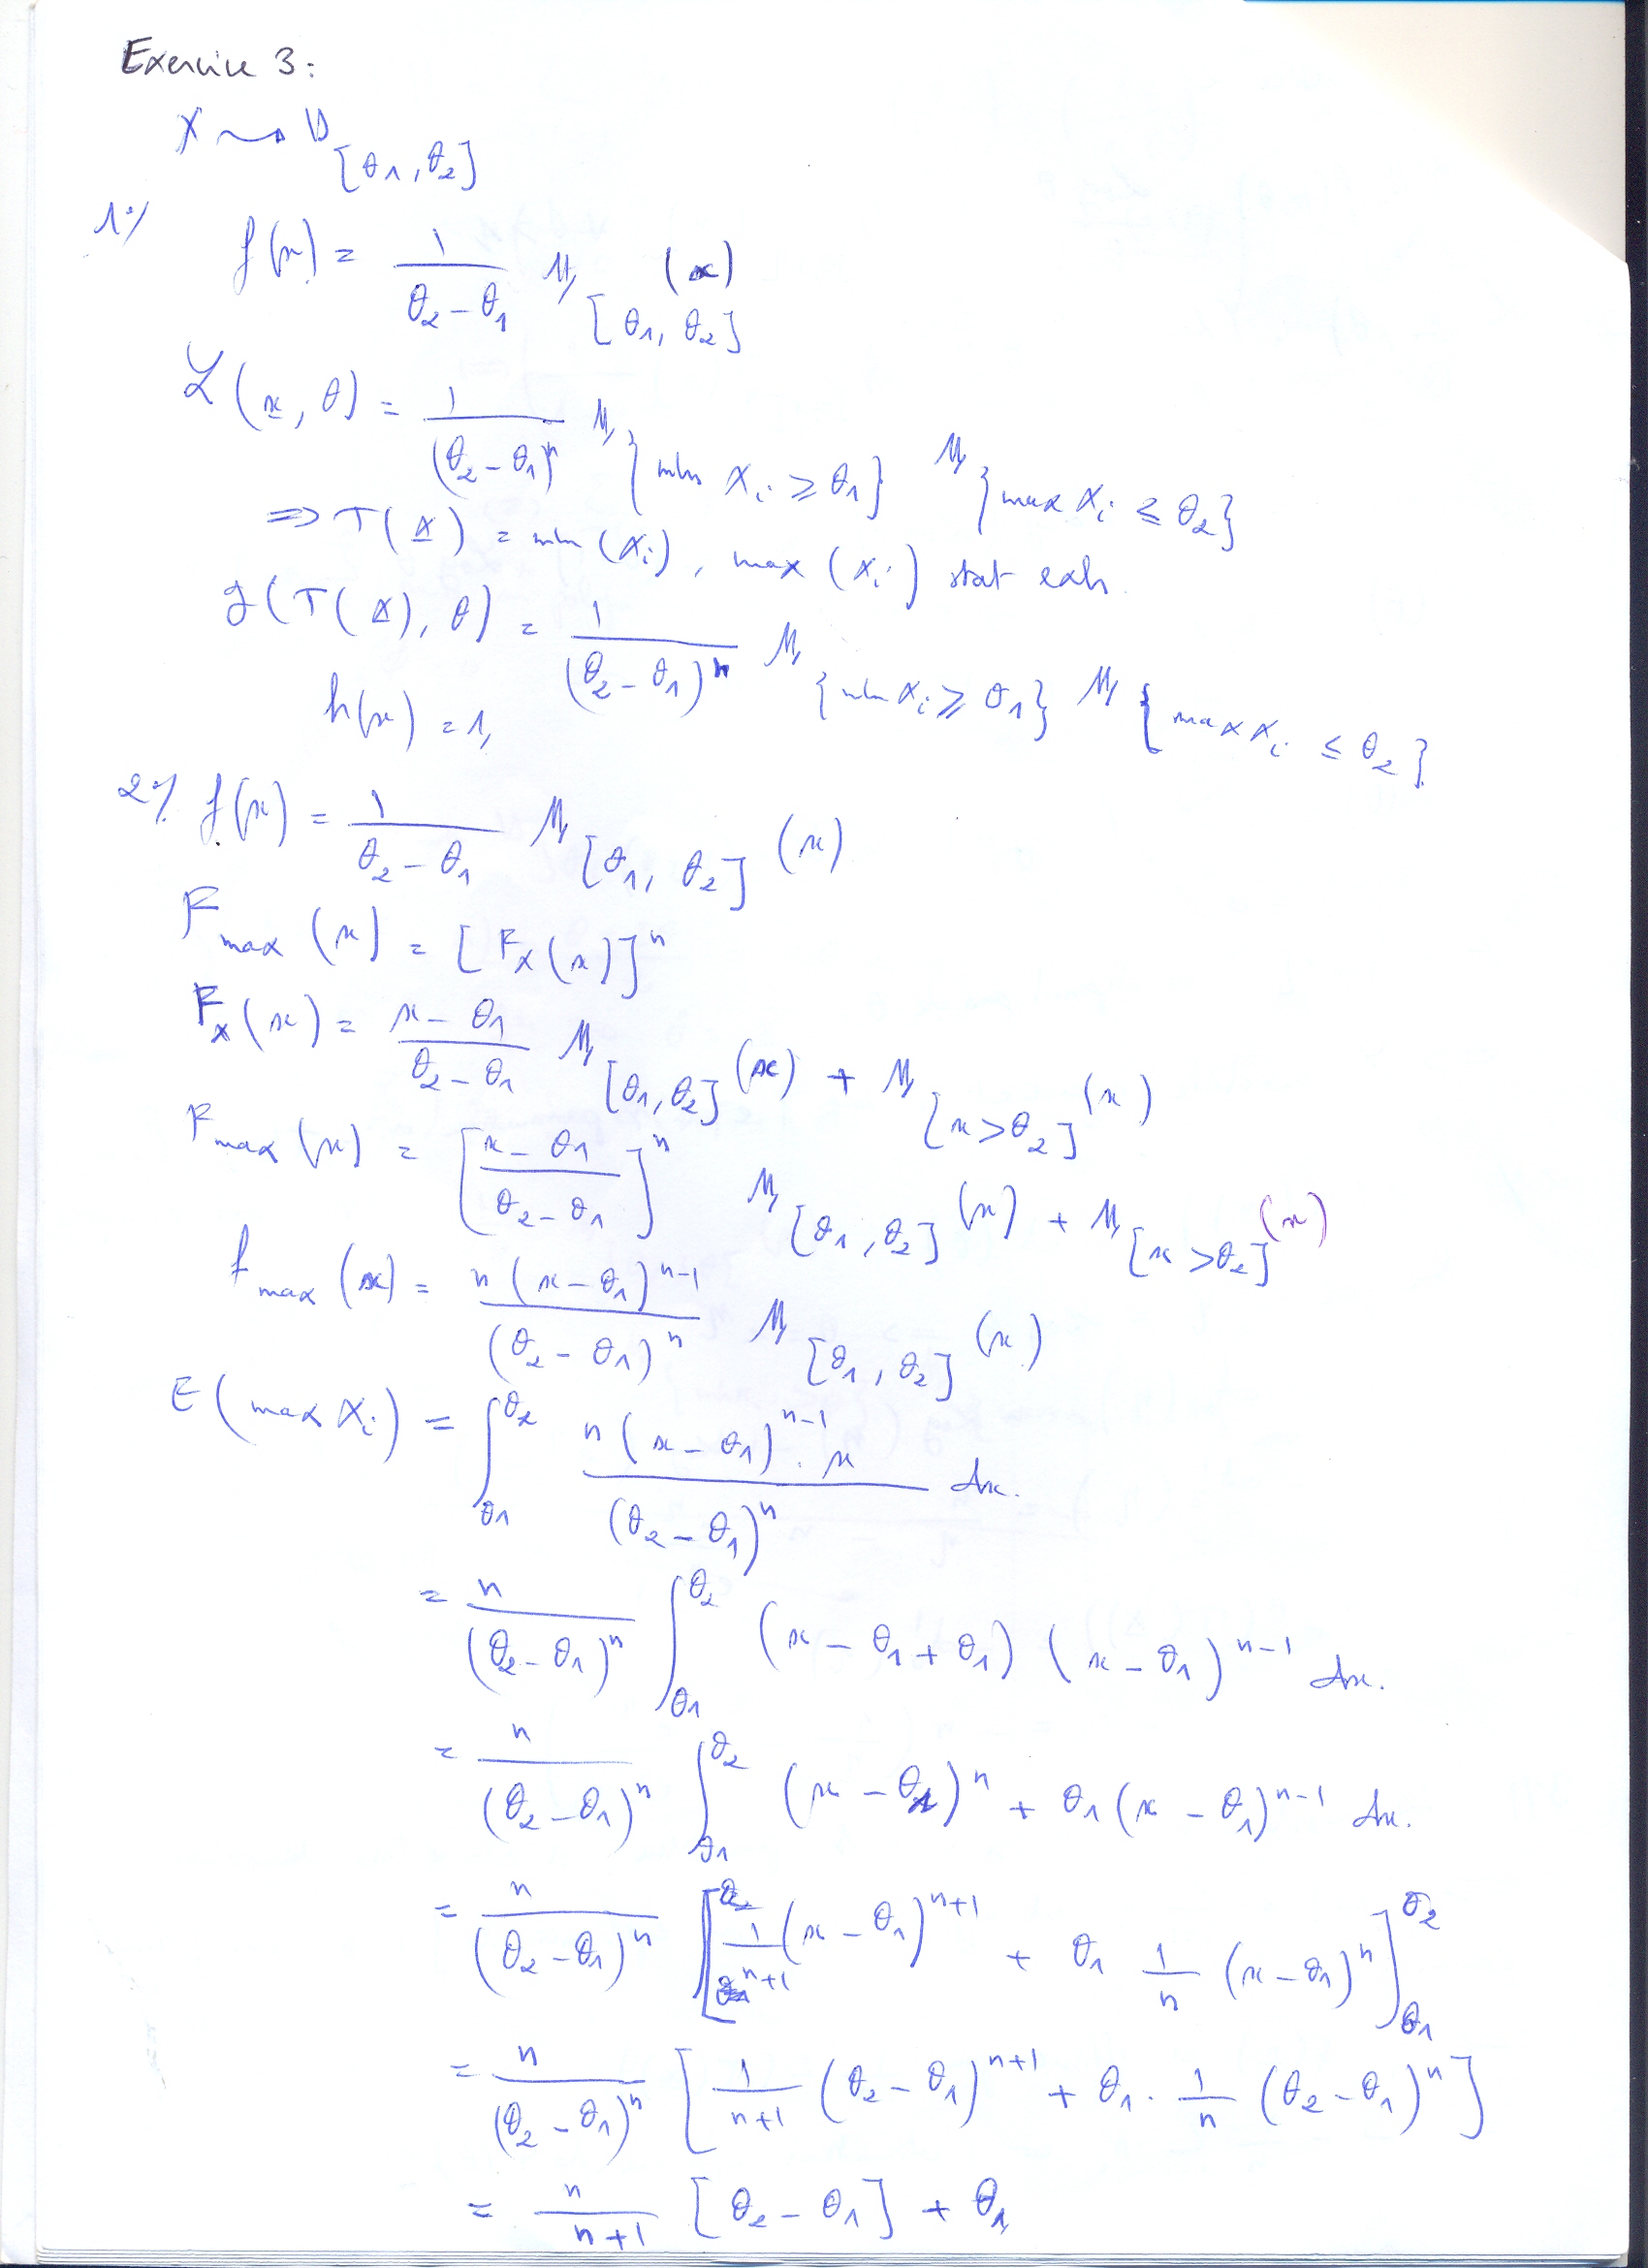 Exercice 3:
X ⤳ U_[θ1, θ2]
1°/ f(x) = 1/(θ2 − θ1) 𝟙_[θ1, θ2] (x)
ℒ(x, θ) = 1/(θ2 − θ1)^n 𝟙_{min Xi ≥ θ1} 𝟙_{max Xi ≤ θ2}
⇒ T(X) = min (Xi), max (Xi) stat exh
g(T(X), θ) = 1/(θ2 − θ1)^n 𝟙_{min Xi ≥ θ1} 𝟙_{max Xi ≤ θ2}
h(x) = 1,
2°/ f(x) = 1/(θ2 − θ1) 𝟙_[θ1, θ2] (x)
F_max (x) = [F_X(x)]^n
F_X(x) = (x − θ1)/(θ2 − θ1) 𝟙_[θ1, θ2] (x) + 𝟙_[x > θ2] (x)
F_max (x) = [(x − θ1)/(θ2 − θ1)]^n 𝟙_[θ1, θ2] (x) + 𝟙_[x > θ2] (x)
f_max (x) = n(x − θ1)^(n−1)/(θ2 − θ1)^n 𝟙_[θ1, θ2] (x)
E(max Xi) = ∫_θ1^θ2 n(x − θ1)^(n−1) . x/(θ2 − θ1)^n dx.
= n/(θ2 − θ1)^n ∫_θ1^θ2 (x − θ1 + θ1) (x − θ1)^(n−1) dx.
= n/(θ2 − θ1)^n ∫_θ1^θ2 (x − θ1)^n + θ1 (x − θ1)^(n−1) dx.
= n/(θ2 − θ1)^n [1/(n+1) (x − θ1)^(n+1) + θ1 1/n (x − θ1)^n]_θ1^θ2
= n/(θ2 − θ1)^n [1/(n+1) (θ2 − θ1)^(n+1) + θ1 . 1/n (θ2 − θ1)^n]
= n/(n+1) [θ2 − θ1] + θ1